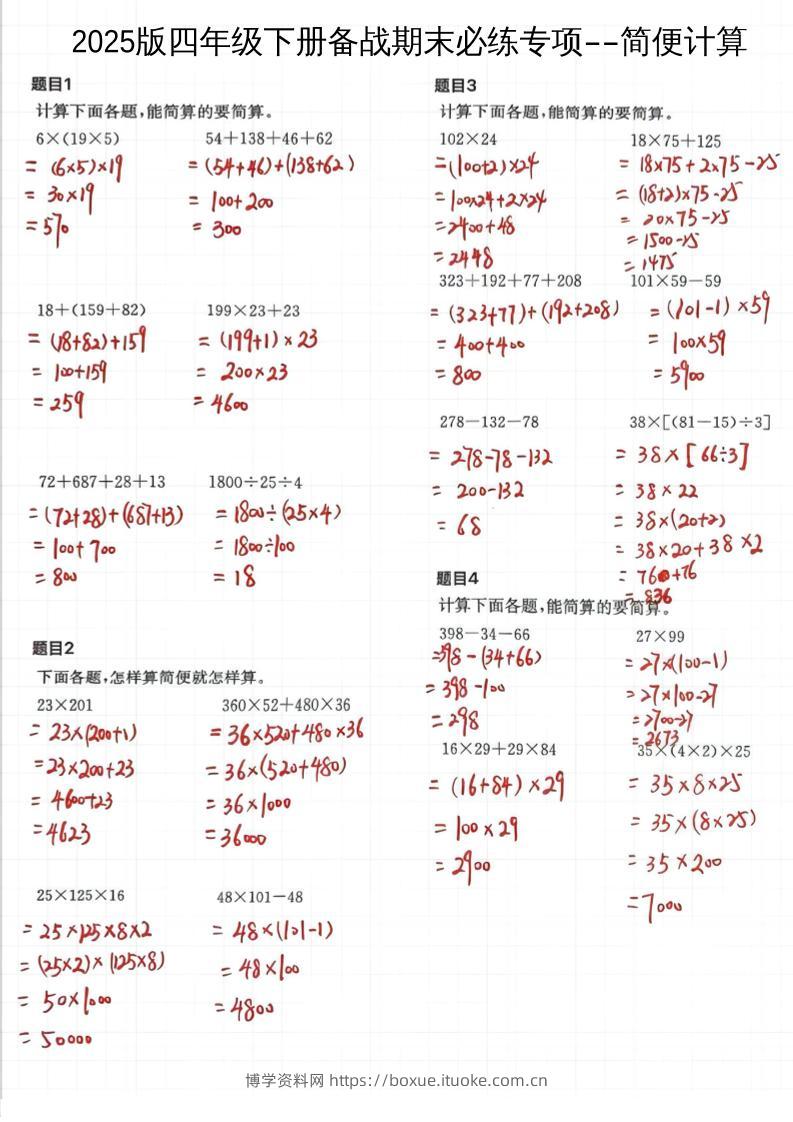 2025版四年级下册备战期末必练专项--简便计算
题目1
计算下面各题,能简算的要简算。
6×(19×5)
= (6×5)×19
= 30×19
= 570
54+138+46+62
= (54+46)+(138+62)
= 100+200
= 300
18+(159+82)
= (18+82)+159
= 100+159
= 259
199×23+23
= (199+1)×23
= 200×23
= 4600
72+687+28+13
= (72+28)+(687+13)
= 100+700
= 800
1800÷25÷4
= 1800÷(25×4)
= 1800÷100
= 18
题目2
下面各题,怎样算简便就怎样算。
23×201
= 23×(200+1)
= 23×200+23
= 4600+23
= 4623
360×52+480×36
= 36×520+480×36
= 36×(520+480)
= 36×1000
= 36000
25×125×16
= 25×125×8×2
= (25×2)×(125×8)
= 50×1000
= 50000
48×101-48
= 48×(101-1)
= 48×100
= 4800
题目3
计算下面各题,能简算的要简算。
102×24
= (100+2)×24
= 100×24+2×24
= 2400+48
= 2448
18×75+125
= 18×75+2×75-25
= (18+2)×75-25
= 20×75-25
= 1500-25
= 1475
323+192+77+208
= (323+77)+(192+208)
= 400+400
= 800
101×59-59
= (101-1)×59
= 100×59
= 5900
278-132-78
= 278-78-132
= 200-132
= 68
38×[(81-15)÷3]
= 38×[66÷3]
= 38×22
= 38×(20+2)
= 38×20+38×2
= 760+76
= 836
题目4
计算下面各题,能简算的要简算。
398-34-66
=398-(34+66)
= 398-100
= 298
27×99
= 27×(100-1)
= 27×100-27
= 2700-27
= 2673
16×29+29×84
= (16+84)×29
= 100×29
= 2900
35×(4×2)×25
= 35×8×25
= 35×(8×25)
= 35×200
= 7000
博学资料网 https://boxue.ituoke.com.cn